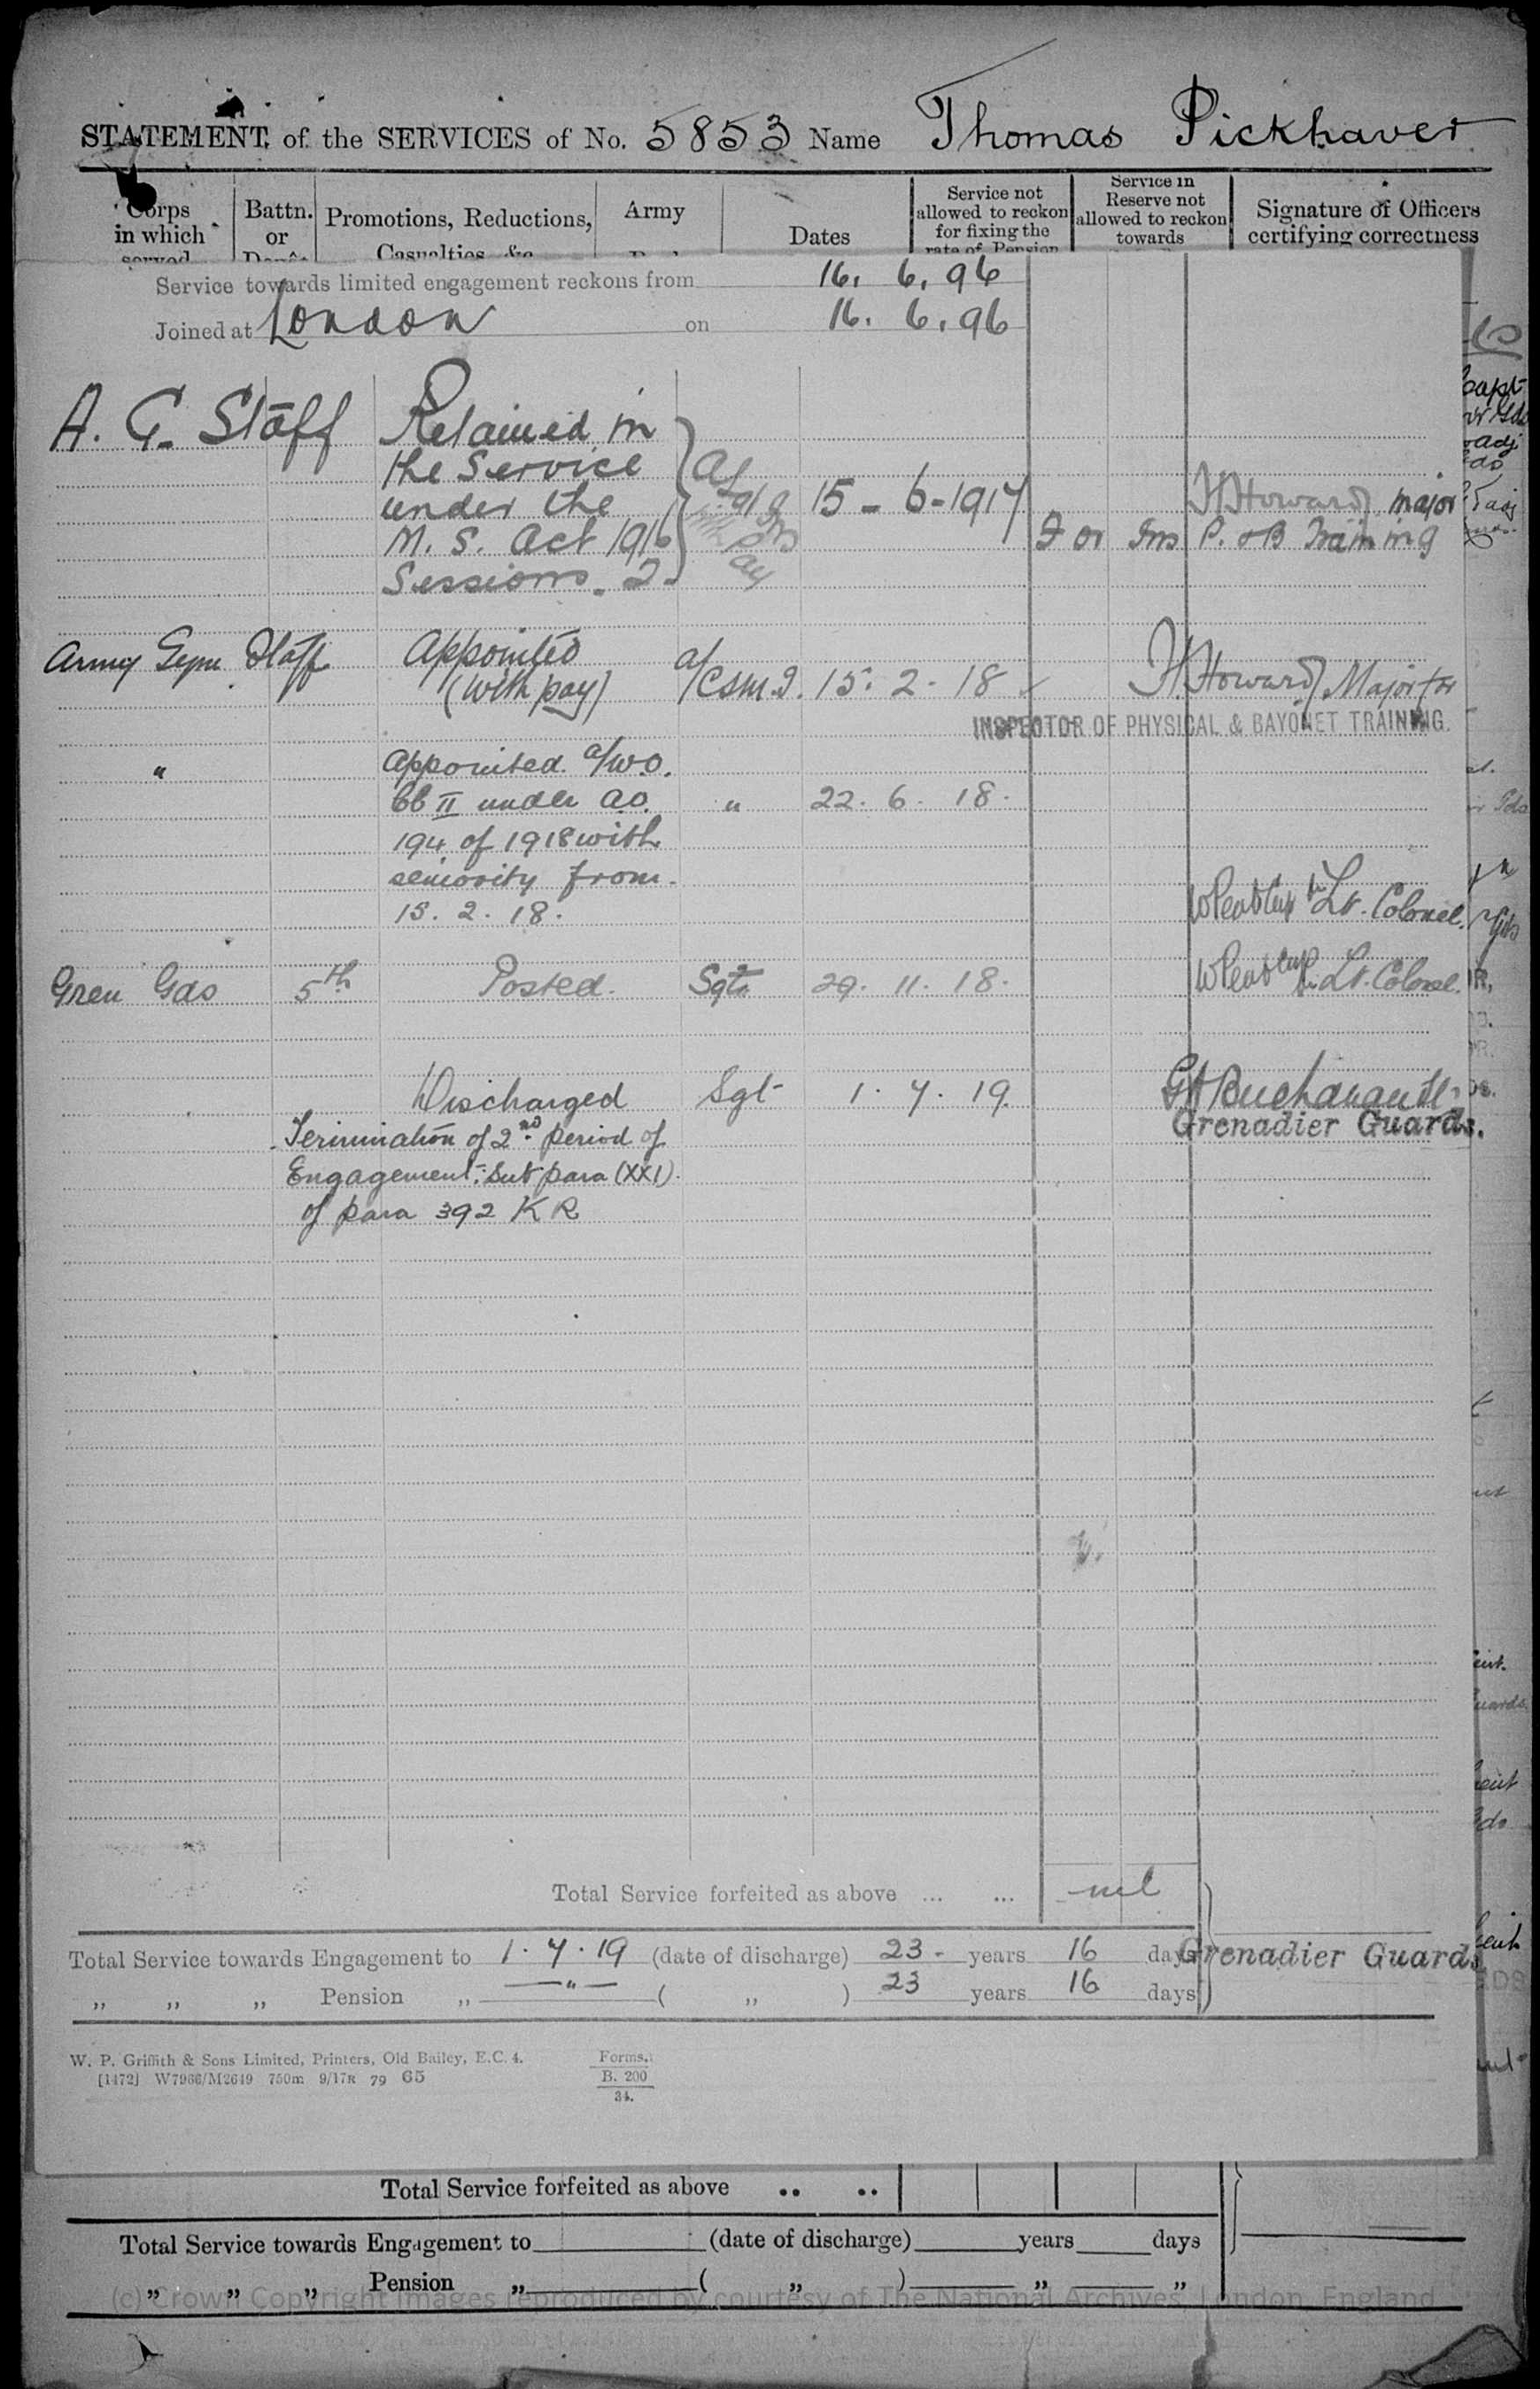 STATEMENT of the SERVICES of No. 5853 Name Thomas Pickhaver
Corps in which served
Battn. or Depôt
Promotions, Reductions, Casualties, &c.
Army
Dates
Service not allowed to reckon for fixing the rate of Pension
Service in Reserve not allowed to reckon towards
Signature of Officers certifying correctness
Service towards limited engagement reckons from 16. 6. 96
Joined at London on 16. 6. 96
A. G. Staff Retained in
the Service
under the 15 - 6 - 1917 H Howard major
M. S. Act 1916 For Ins P. & B Training
Sessions. 2.
with Pay
Army Gym Staff Appointed
(with pay) a/CSM.I. 15. 2. 18 H. Howard Major for
INSPECTOR OF PHYSICAL & BAYONET TRAINING.
" appointed a/W.O.
Cl II under A.O. " 22. 6. 18.
194 of 1918 with
seniority from
15. 2. 18. Lt. Colonel.
Gren Gds 5th Posted. Sgt. 29. 11. 18. Lt. Colonel.
Discharged Sgt 1. 7. 19. G H Buchanan Lt
Grenadier Guards.
Termination of 2nd period of
Engagement: Sub para (XXI)
of para 392 K R
Total Service forfeited as above ... ... nil
Total Service towards Engagement to 1. 7. 19 (date of discharge) 23 - years 16 days
Grenadier Guards
„ „ „ Pension „ — " — ( „ ) 23 years 16 days
W. P. Griffith & Sons Limited, Printers, Old Bailey, E.C. 4.
[1472] W7966/M2649 750m 9/17R 79 65
Forms.
B. 200
34.
Total Service forfeited as above .. ..
Total Service towards Engagement to (date of discharge) years days
„ „ „ Pension „ ( „ ) „ „
(c) Crown Copyright Images reproduced by courtesy of The National Archives, London, England